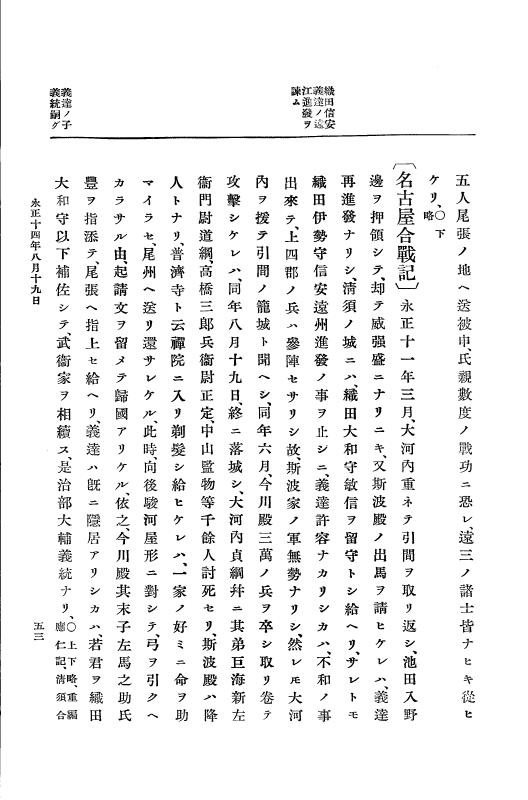 織田信安
義達ノ遠
江進發ヲ
諫ム
義達ノ子
義統嗣グ
五人尾張ノ地ヘ送被申、氏親數度ノ戰功ニ恐レ、遠三ノ諸士皆ナヒキ從ヒ
ケリ、○下略
〔名古屋合戰記〕永正十一年三月、大河內重ネテ引間ヲ取リ返シ、池田入野
邊ヲ押領シテ、却テ威强盛ニナリニキ、又斯波殿ノ出馬ヲ請ヒケレハ、義達
再進發ナリシ、淸須ノ城ニハ、織田大和守敏信ヲ留守トシ給ヘリ、サレトモ
織田伊勢守信安遠州進發ノ事ヲ止シニ、義達許容ナカリシカハ、不和ノ事
出來テ、上四郡ノ兵ハ參陣セサリシ故、斯波家ノ軍無勢ナリシ、然レ𪜈大河
內ヲ援テ引間ノ籠城ト聞ヘシ、同年六月、今川殿三萬ノ兵ヲ卒シ取リ卷テ
攻擊シケレハ、同年八月十九日、終ニ落城シ、大河內貞綱幷ニ其弟巨海新左
衞門尉道綱、高橋三郎兵衞尉正定、中山監物等千餘人討死セリ、斯波殿ハ降
人トナリ、普濟寺ト云禪院ニ入リ剃髮シ給ヒケレハ、一家ノ好ミニ命ヲ助
マイラセ、尾州ヘ送リ還サレケル、此時向後駿河屋形ニ對シテ、弓ヲ引クヘ
カラサル由、起請文ヲ留メテ歸國アリケル、依之、今川殿其末子左馬之助氏
豐ヲ指添テ、尾張ヘ指上セ給ヘリ、義達ハ旣ニ隱居アリシカハ、若君ヲ織田
大和守以下補佐シテ、武衞家ヲ相續ス、是治部大輔義統ナリ、○上下略、重編應仁記、淸須合
永正十四年八月十九日
五三